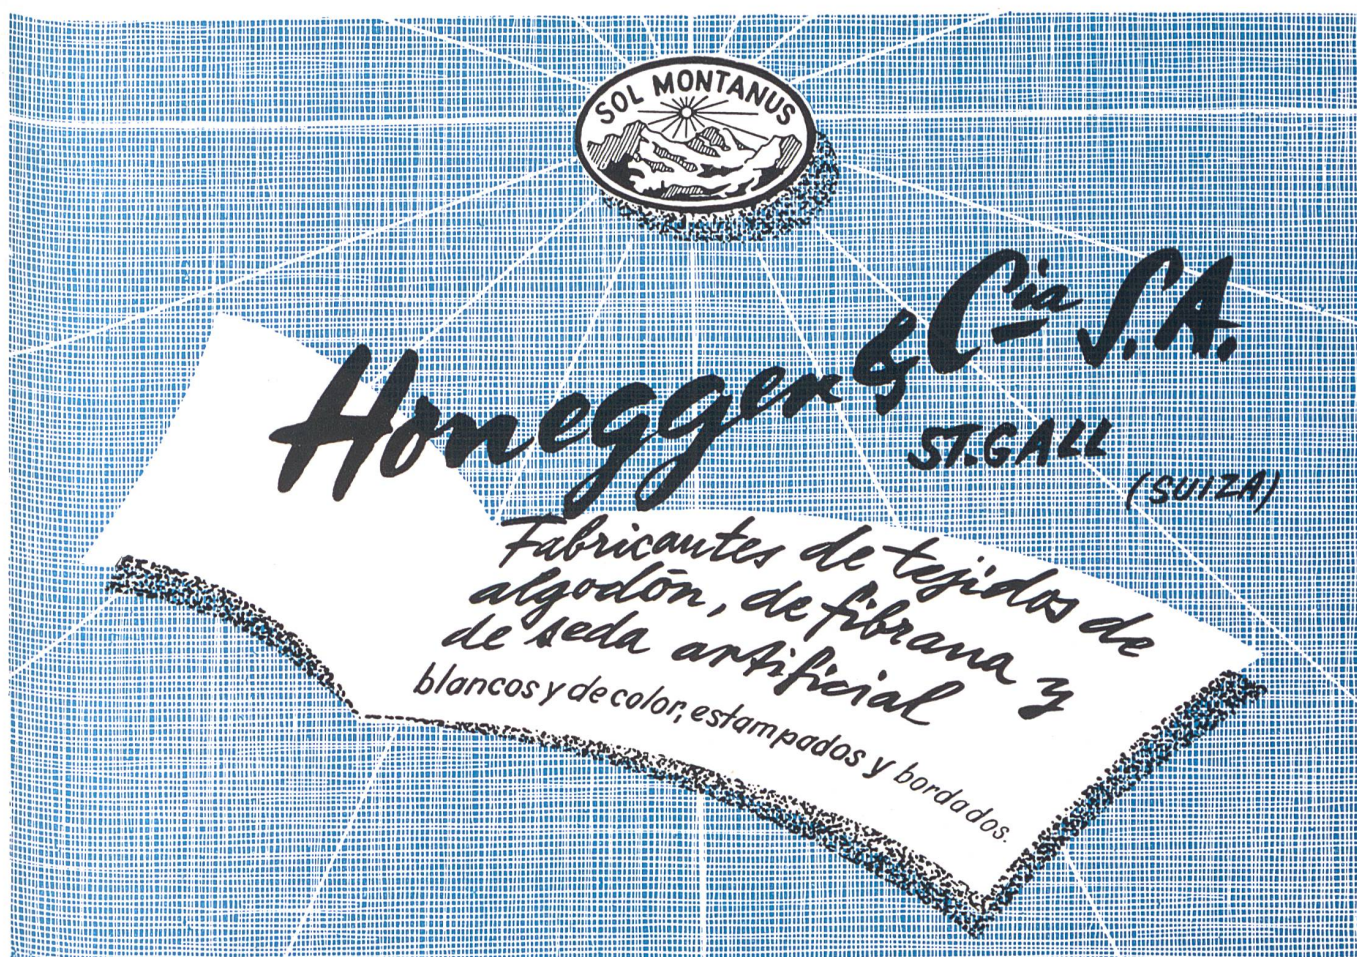 SOL MONTANUS
Honegger & Cia S.A.
ST. GALL
(SUIZA)
Fabricantes de tejidos de
algodón, de fibrana y
de seda artificial
blancos y de color, estampados y bordados.